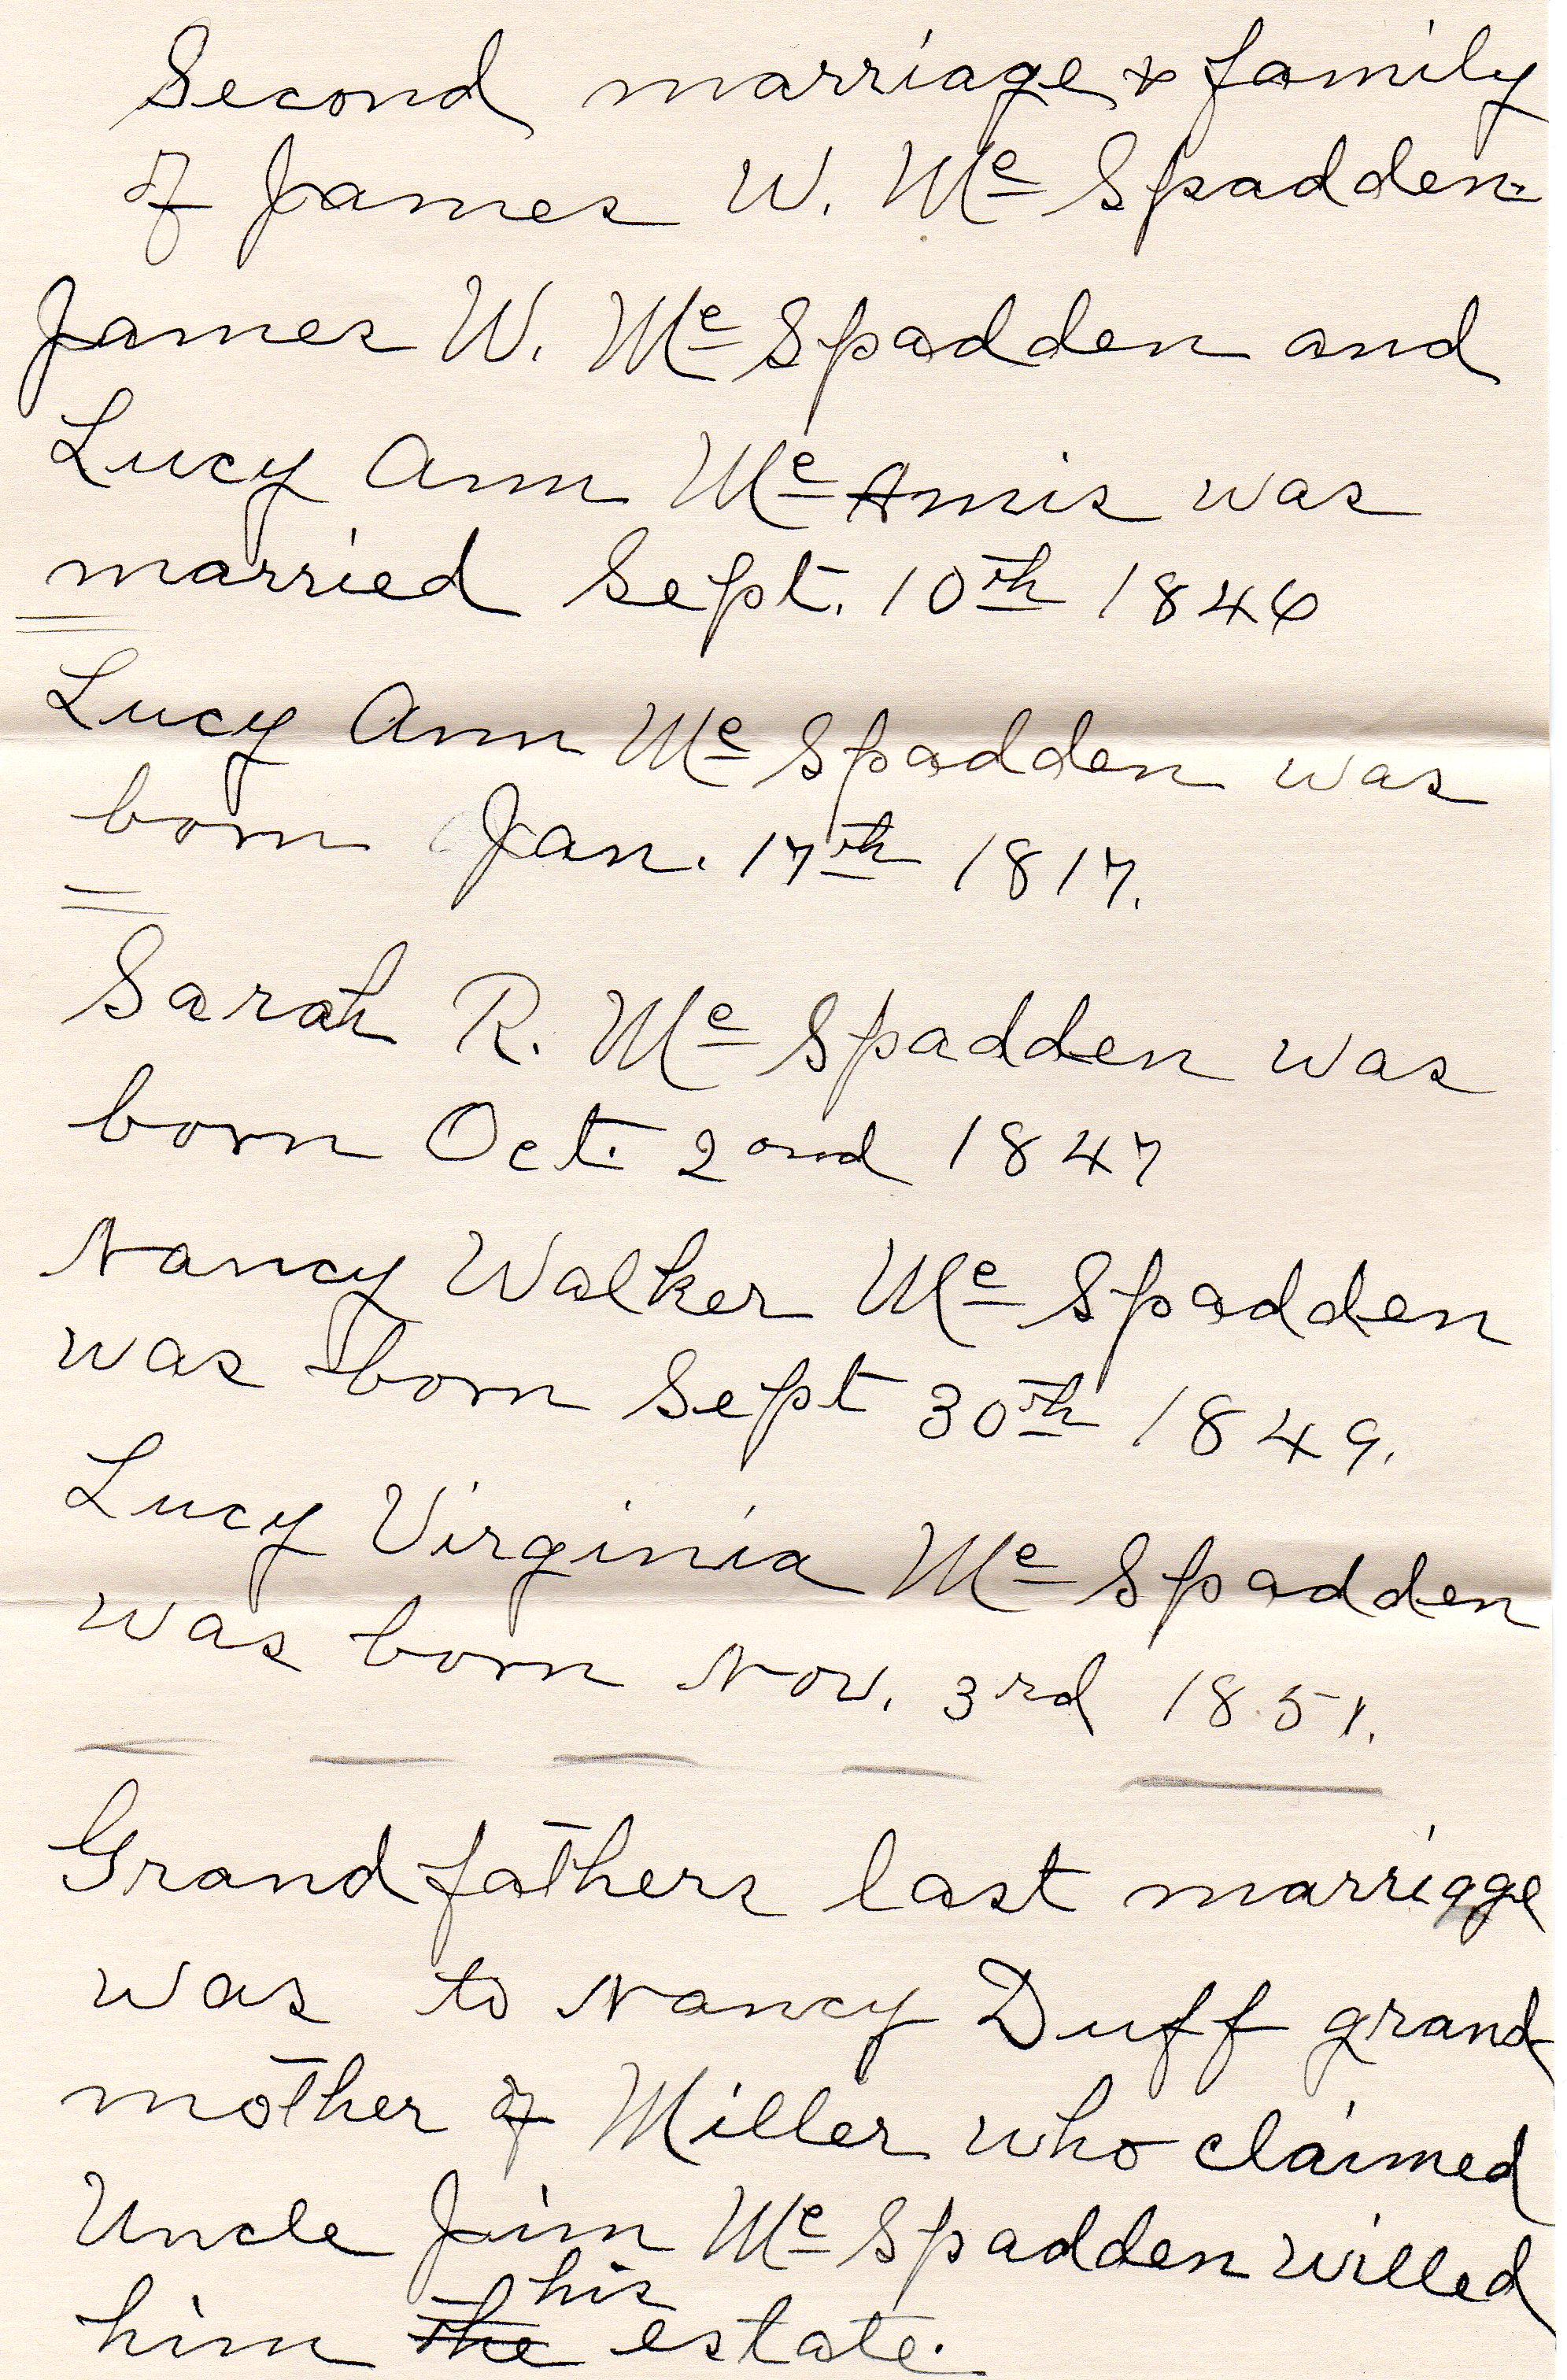 Second marriage & family
of James W. Mc Spadden-
James W. Mc Spadden and
Lucy Ann Mc Amis was
married Sept. 10th 1846
Lucy Ann Mc Spadden was
born Jan. 17th 1817.
Sarah R. Mc Spadden was
born Oct. 2ond 1847
Nancy Walker Mc Spadden
was born Sept 30th 1849.
Lucy Virginia Mc Spadden
was born Nov. 3rd 1851.
Grandfathers last marriage
was to Nancy Duff grand
mother of Miller who claimed
Uncle Jim Mc Spadden willed
his
him the estate.